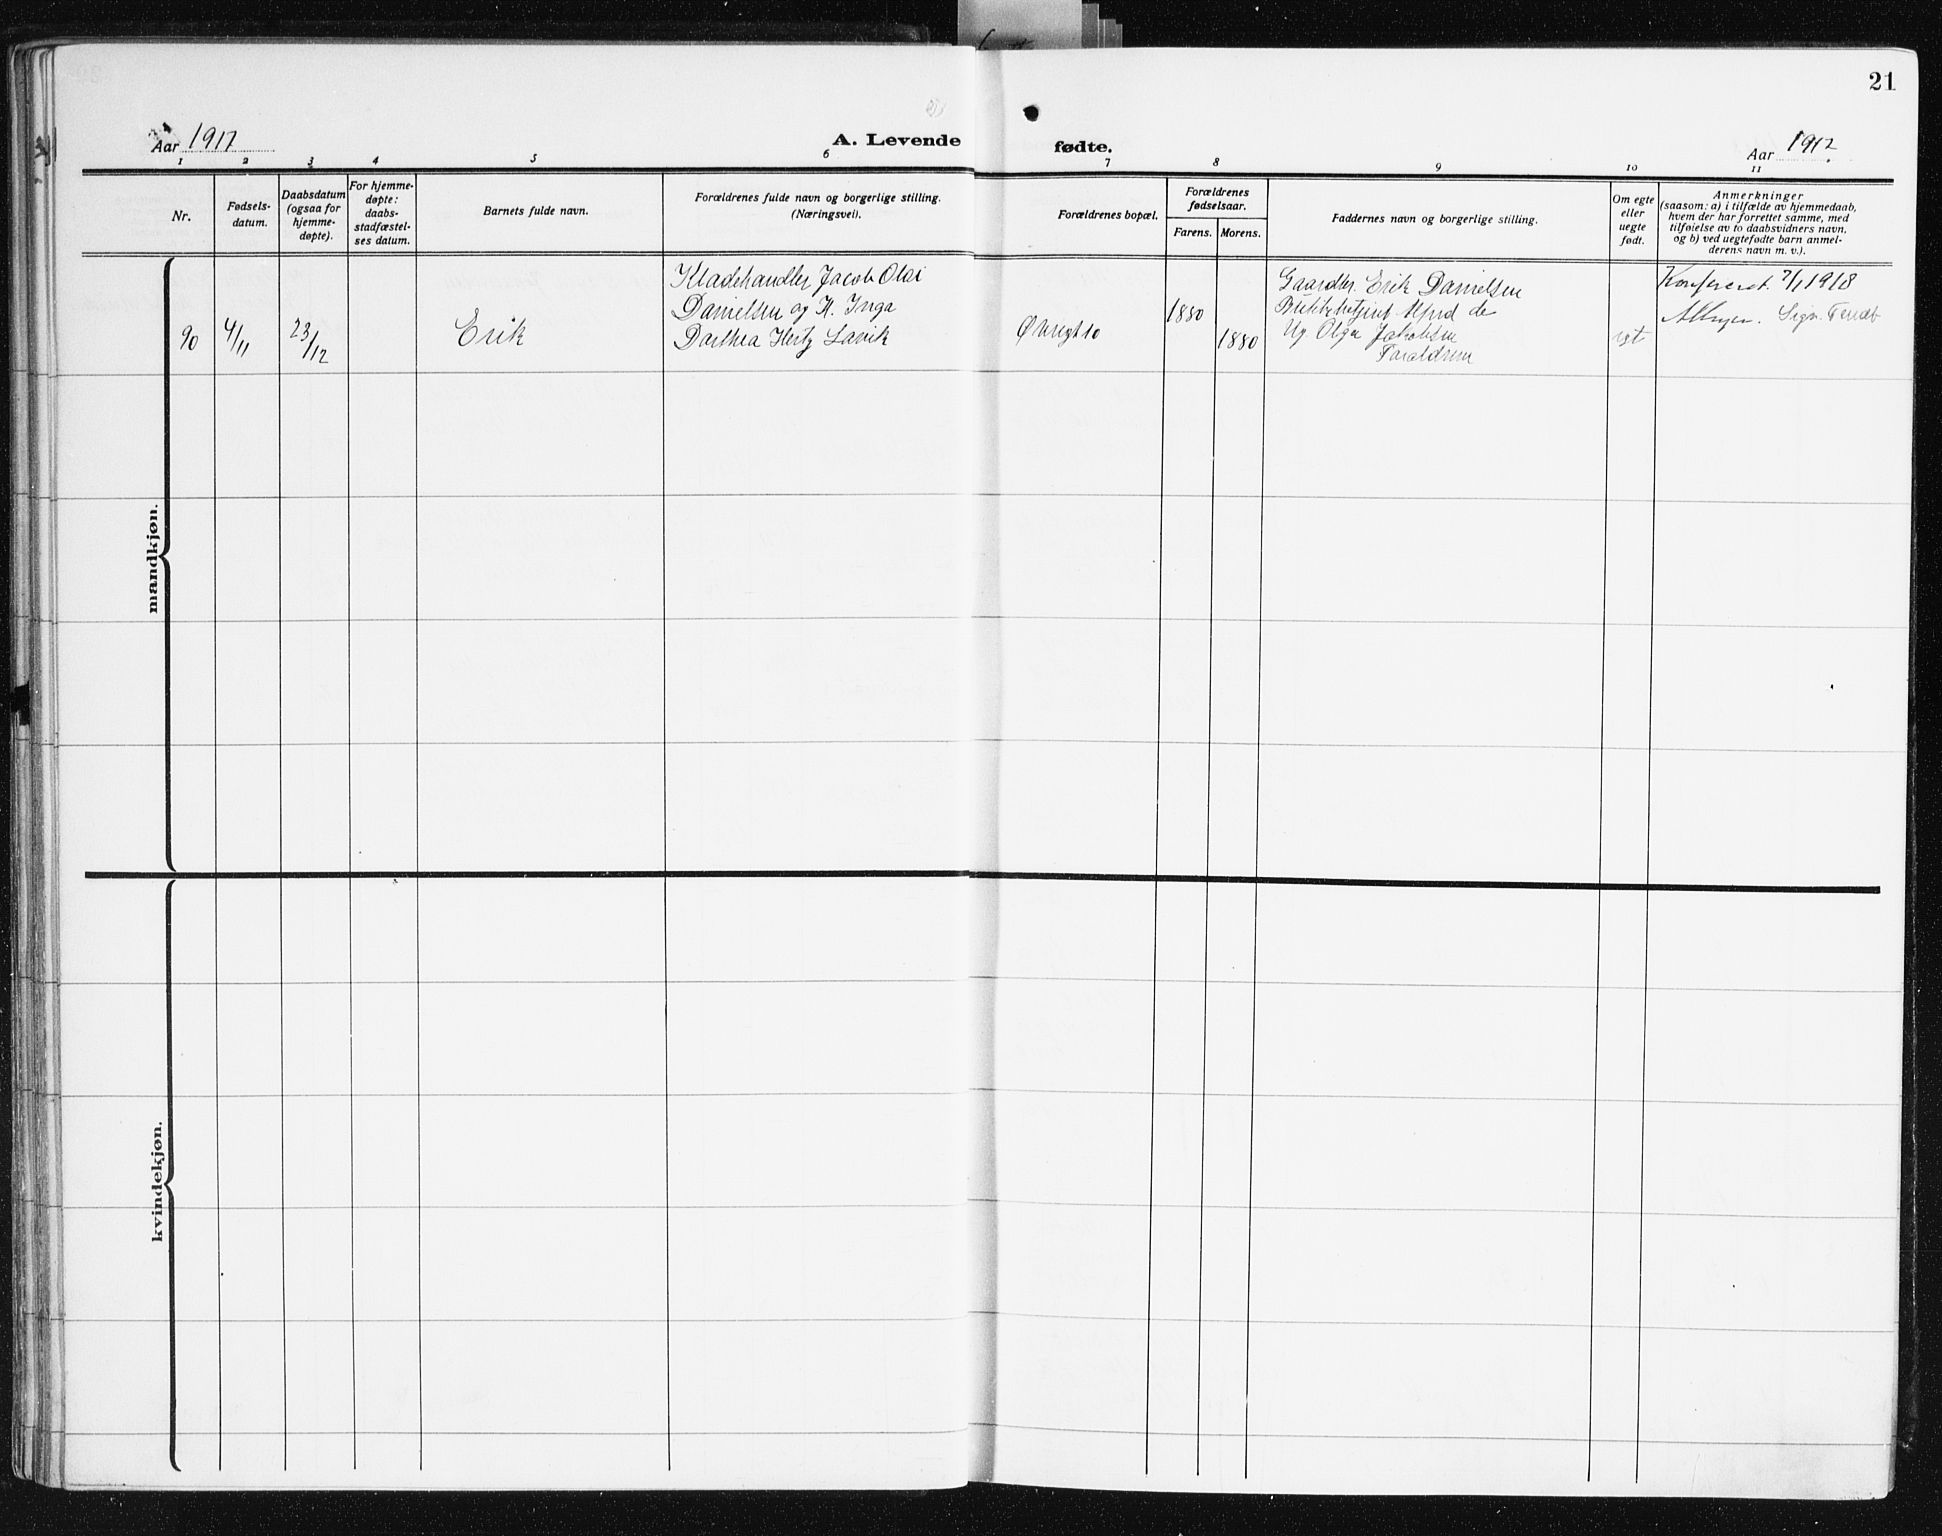 21
Aar 1917
A. Levende
fødte.
Aar 1912
1 2 3 4 5 6 7 8 9 10 11
Nr.
Fødsels-
datum.
Daabsdatum
(ogsaa for
hjemme-
døpte).
For hjemme-
døpte:
daabs-
stadfæstel-
ses datum.
Barnets fulde navn.
Forældrenes fulde navn og borgerlige stilling.
(Næringsvei).
Forældrenes bopæl.
Forældrenes
fødselsaar.
Farens. Morens.
Faddernes navn og borgerlige stilling.
Om egte
eller
uegte
født.
Anmerkninger
(saasom: a) i tilfælde av hjemmedaab,
hvem der har forrettet samme, med
tilføielse av to daabsvidners navn,
og b) ved uegtefødte barn anmel-
derens navn m. v.).
mandkjøn.
90
4/11
23/12
Erik
Kladehandler Jacob Olai
Danielsen og H. Inga
Dorthea Hertz Lavik
1880
1880
Gaardbr. Erik Danielsen
Alfred do
Ug. Olga Jakobsen
Forældrene
egt
Konfereret 7/1 1918
Sign.
kvindekjøn.